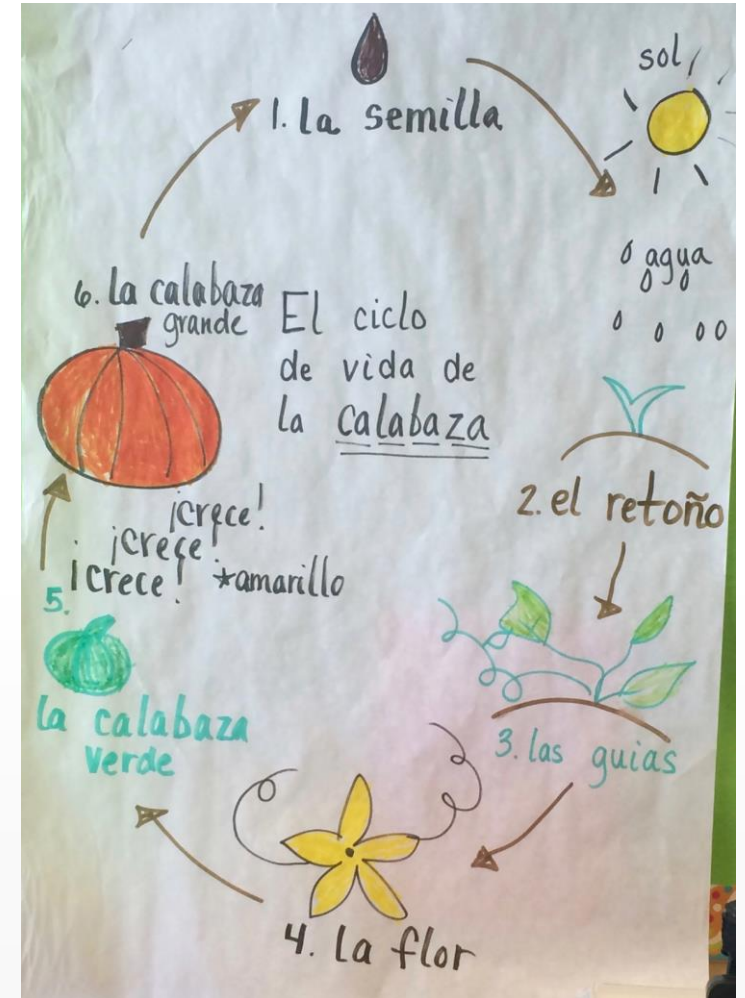 El ciclo
de vida de
la calabaza
1. la semilla
sol
agua
2. el retoño
3. las guias
4. la flor
5.
la calabaza
verde
¡crece!
¡crece!
¡crece! *amarillo
6. la calabaza
grande